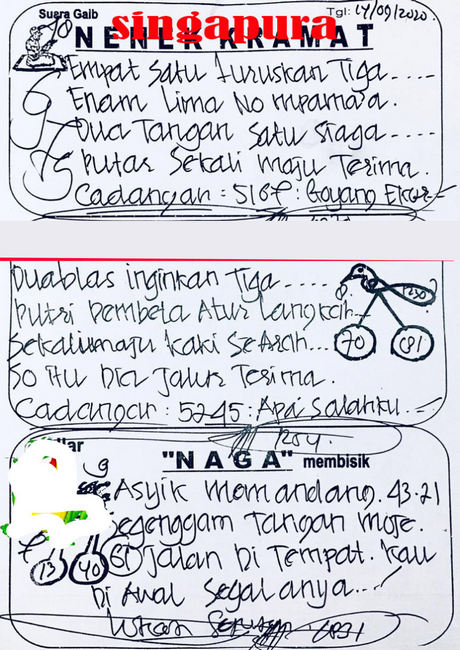 singapura
Suara Gaib
Tgl: 14/09/2020.
NENEK KRAMAT
Empat Satu turuskan Tiga....
Enam Lima No
Dua Tangan Satu Siaga....
Putar Sekali maju Terima.
Cadangan: 5187: Goyang Ekor
Duablas inginkan Tiga....
Putri pembeta Atur Langkah
Sekalimaju kaki SeArah...
So itu Dia Jalur Terima.
Cadangan: 5245: Apa Salahku.
70
"NAGA" membisik
Asyik Memandang. 43.21
Segenggam Tangan
13 40 61 Jalan Di Tempat. Kau
Di Awal Segalanya...